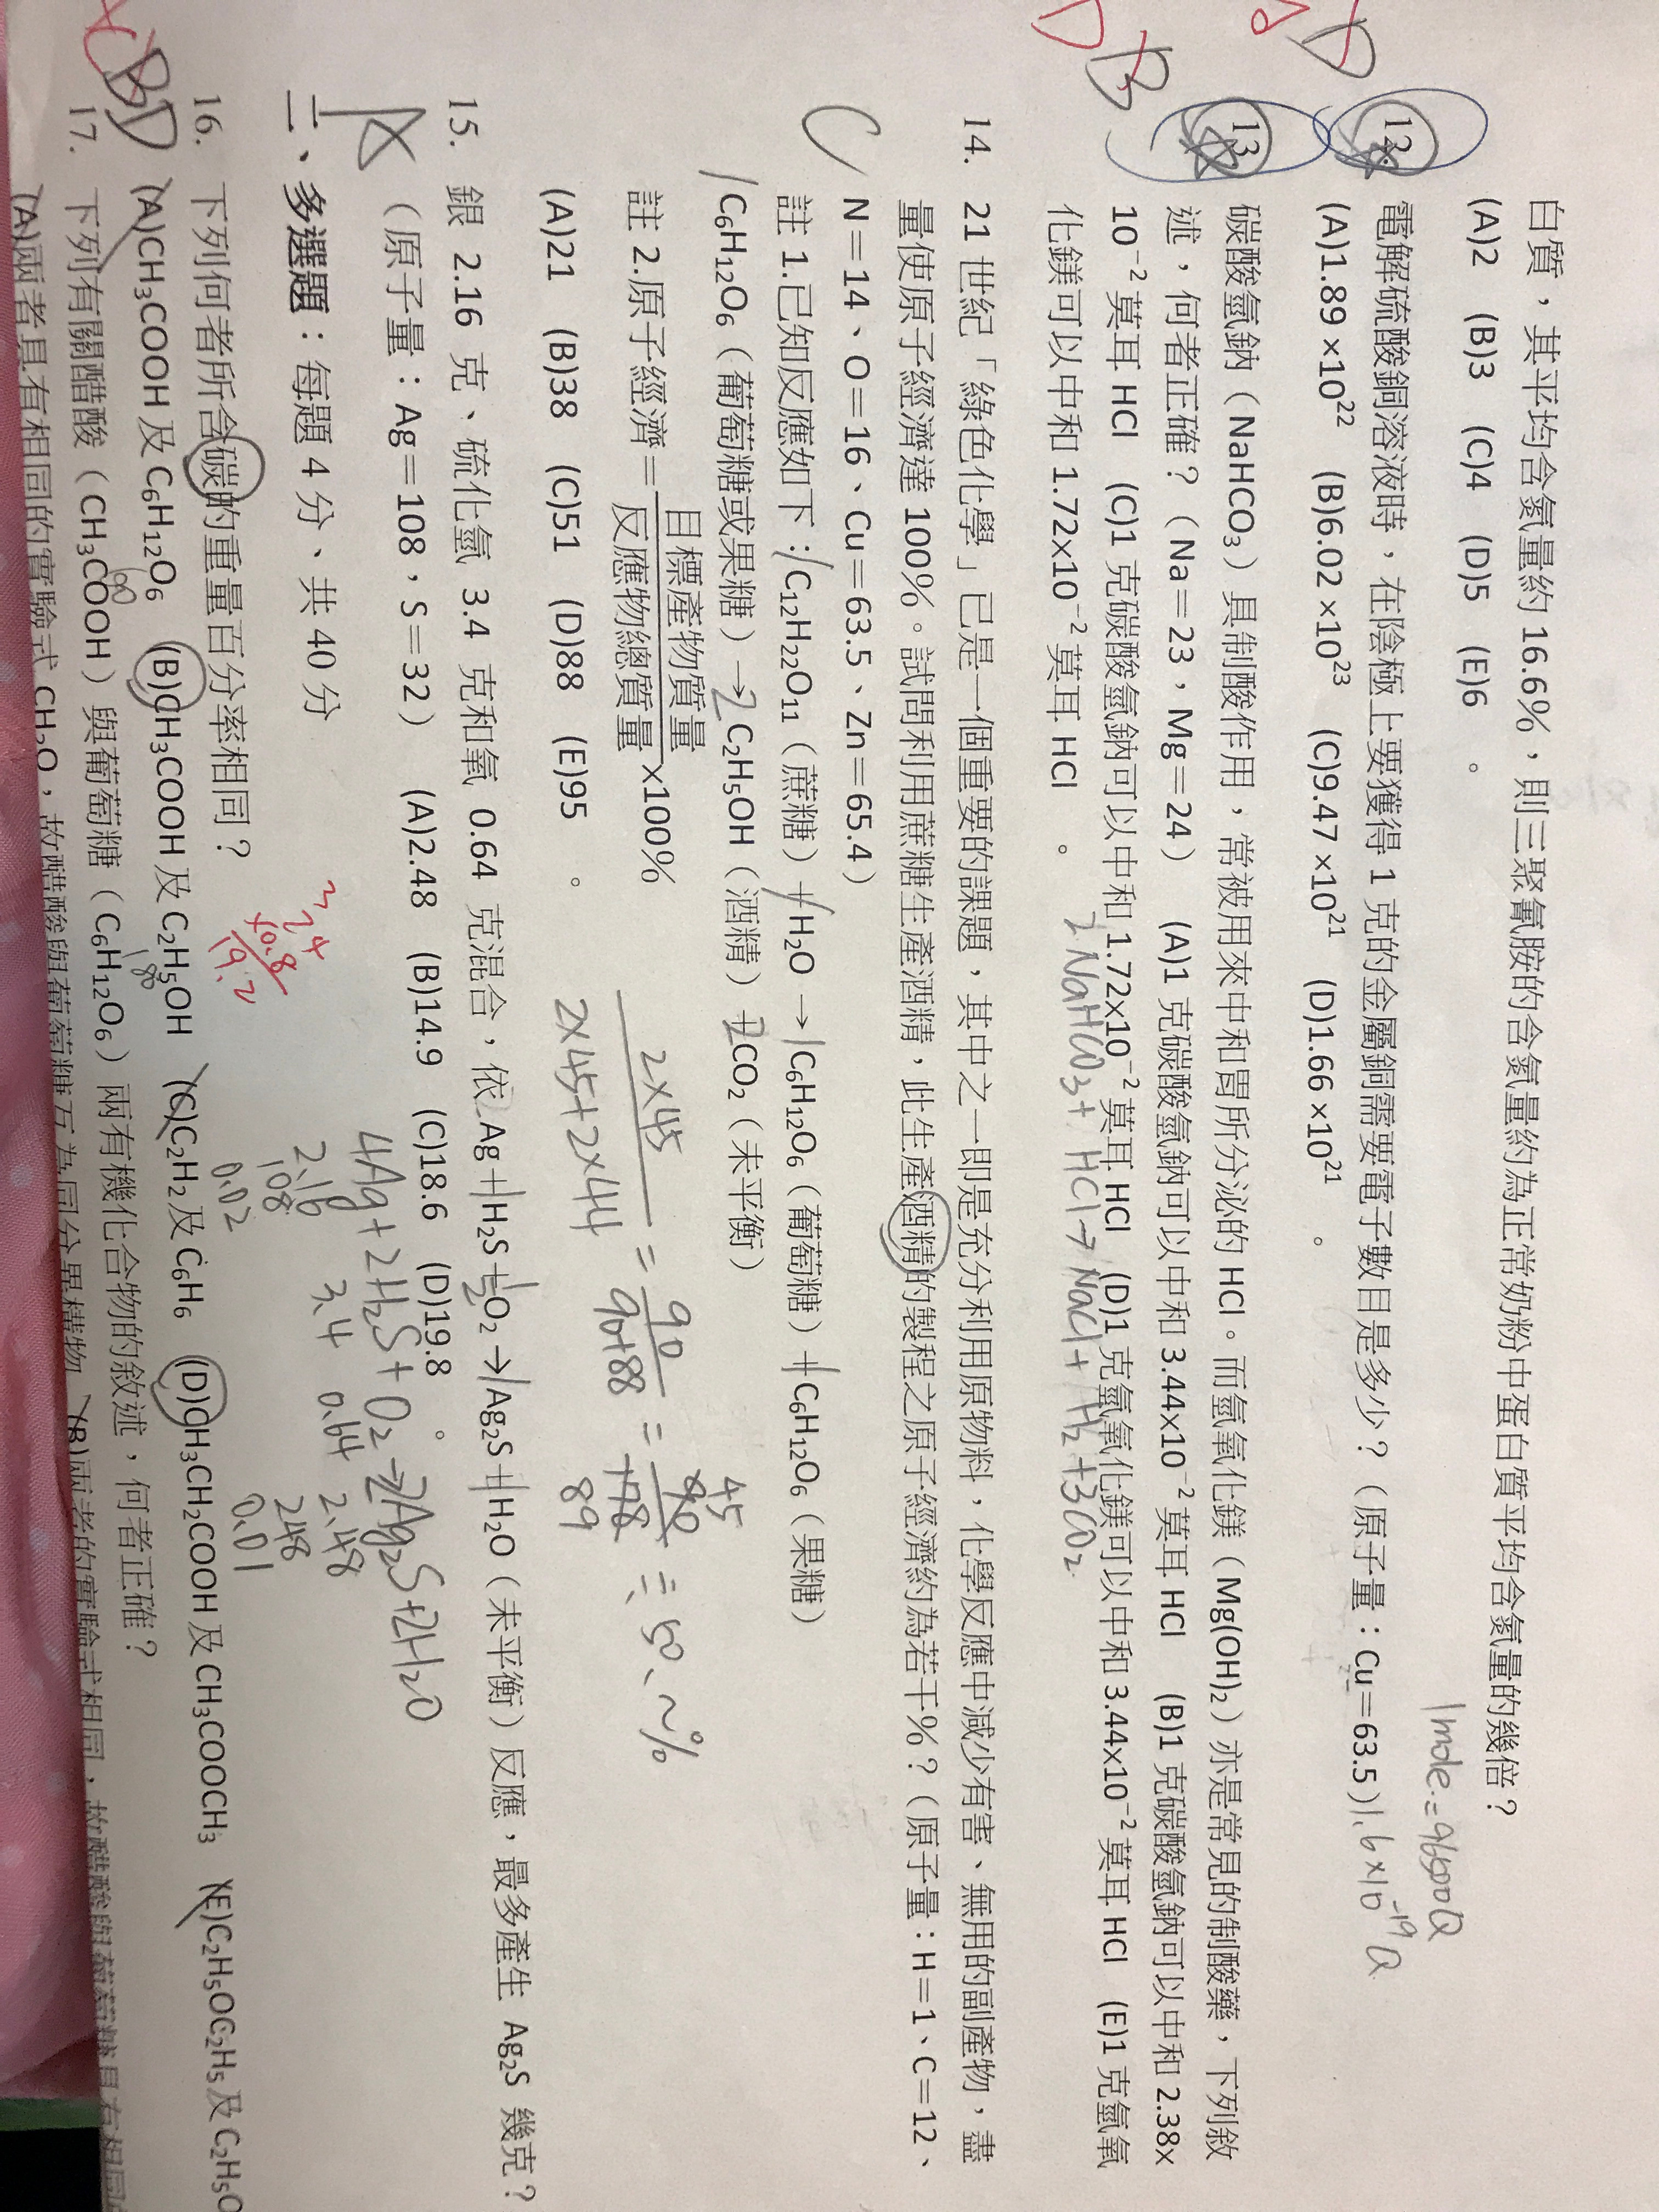 白質，其平均含氮量約 16.6%，則三聚氰胺的含氮量約為正常奶粉中蛋白質平均含氮量的幾倍？
(A)2 (B)3 (C)4 (D)5 (E)6 。
1 mole = 96500Q
D
12. 電解硫酸銅溶液時，在陰極上要獲得 1 克的金屬銅需要電子數目是多少？（原子量：Cu＝63.5） 1.6×10⁻¹⁹Q
(A)1.89 ×10²² (B)6.02 ×10²³ (C)9.47 ×10²¹ (D)1.66 ×10²¹ 。
B D
13. 碳酸氫鈉（NaHCO₃）具制酸作用，常被用來中和胃所分泌的 HCl。而氫氧化鎂（Mg(OH)₂）亦是常見的制酸藥，下列敘
述，何者正確？（Na＝23，Mg＝24） (A)1 克碳酸氫鈉可以中和 3.44x10⁻² 莫耳 HCl (B)1 克碳酸氫鈉可以中和 2.38x
10⁻² 莫耳 HCl (C)1 克碳酸氫鈉可以中和 1.72x10⁻² 莫耳 HCl (D)1 克氫氧化鎂可以中和 3.44x10⁻² 莫耳 HCl (E)1 克氫氧
化鎂可以中和 1.72x10⁻² 莫耳 HCl 。
2NaHCO₃ + HCl → NaCl + H₂ + 3CO₂
C
14. 21 世紀「綠色化學」已是一個重要的課題，其中之一即是充分利用原物料，化學反應中減少有害、無用的副產物，盡
量使原子經濟達 100%。試問利用蔗糖生產酒精，此生產酒精的製程之原子經濟約為若干%？（原子量：H＝1、C＝12、
N＝14、O＝16、Cu＝63.5、Zn＝65.4）
註 1.已知反應如下：1C₁₂H₂₂O₁₁（蔗糖）＋1H₂O → 1C₆H₁₂O₆（葡萄糖）＋1C₆H₁₂O₆（果糖）
1C₆H₁₂O₆（葡萄糖或果糖）→2C₂H₅OH（酒精）＋2CO₂（未平衡）
註 2.原子經濟＝目標產物質量/反應物總質量×100%
2×45/2×45+2×44 = 90/90+88 = 90/178 45/89 ≒ 50.~%
(A)21 (B)38 (C)51 (D)88 (E)95 。
A
15. 銀 2.16 克、硫化氫 3.4 克和氧 0.64 克混合，依2Ag＋1H₂S＋½O₂→1Ag₂S＋1H₂O（未平衡）反應，最多產生 Ag₂S 幾克？
（原子量：Ag＝108，S＝32） (A)2.48 (B)14.9 (C)18.6 (D)19.8 。
4Ag + 2H₂S + O₂ → 2Ag₂S + 2H₂O
2.16 3.4 0.64 2.48
108 248
0.02 0.01
二、多選題：每題 4 分、共 40 分
24
×0.8
19.2
BD
16. 下列何者所含碳的重量百分率相同？
(A)CH₃COOH 及 C₆H₁₂O₆ (B)CH₃COOH 及 C₂H₅OH (C)C₂H₂ 及 C₆H₆ (D)CH₃CH₂COOH 及 CH₃COOCH₃ (E)C₂H₅OC₂H₅ 及 C₂H₅O
60 180
17. 下列有關醋酸（CH₃COOH）與葡萄糖（C₆H₁₂O₆）兩有機化合物的敘述，何者正確？
(A)兩者具有相同的實驗式 CH₂O，故醋酸與葡萄糖互為同分異構物 (B)兩者的實驗式相同，故醋酸與葡萄糖具有相同